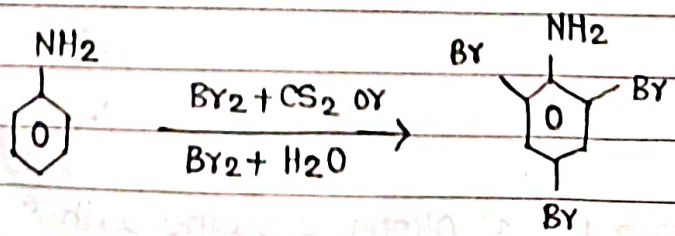 NH2
Br2 + CS2 or
Br2 + H2O
NH2
Br
Br
Br